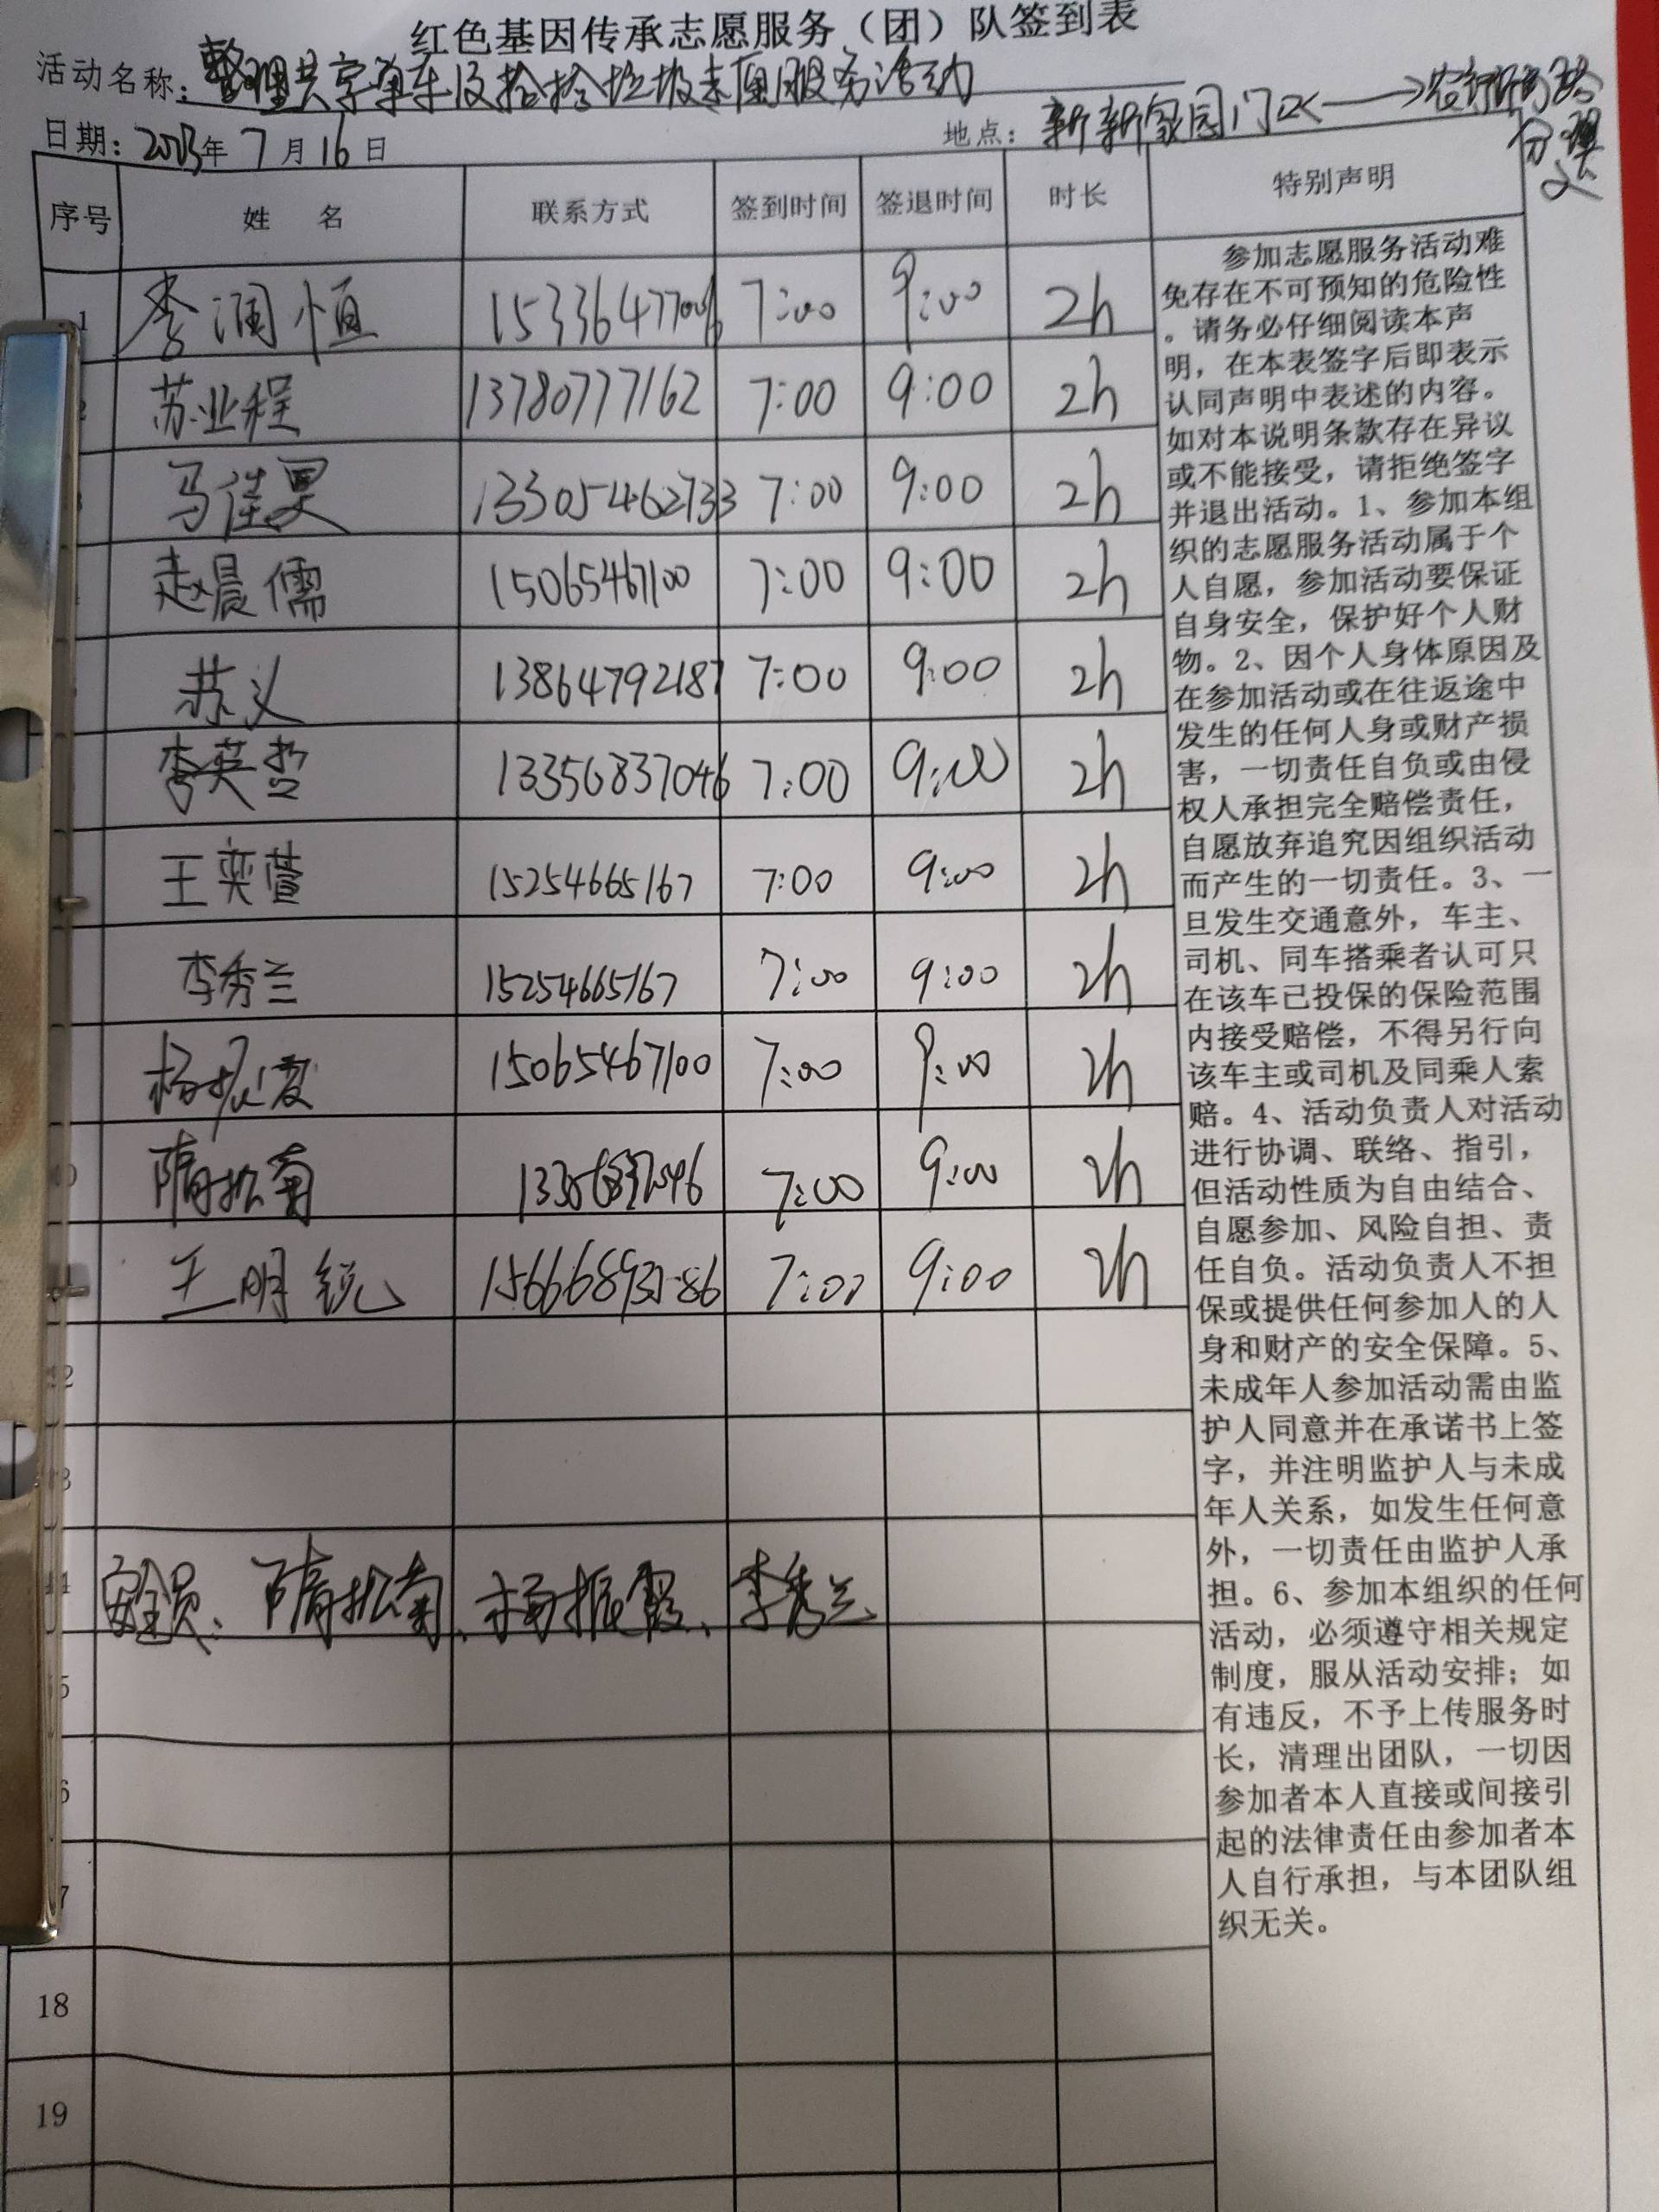 红色基因传承志愿服务（团）队签到表
活动名称：整理共享单车及捡拾垃圾志愿服务活动
日期：2023年7月16日 地点：新新家园门口
分理处
序号 姓 名 联系方式 签到时间 签退时间 时长 特别声明
1 李润恒 15336477006 7:00 9:00 2h
苏业程 13780777162 7:00 9:00 2h
马佳昊 13305462733 7:00 9:00 2h
赵晨儒 15065467100 7:00 9:00 2h
苏义 13864792187 7:00 9:00 2h
李英哲 13356837046 7:00 9:00 2h
王奕萱 15254665167 7:00 9:00 2h
李秀兰 15254665167 7:00 9:00 2h
杨振霞 15065467100 7:00 9:00 2h
隋松菊 7:00 9:00 2h
王明锐 7:00 9:00 2h
安全员：隋松菊、杨振霞、李秀兰
18
19
参加志愿服务活动难
免存在不可预知的危险性
。请务必仔细阅读本声
明，在本表签字后即表示
认同声明中表述的内容。
如对本说明条款存在异议
或不能接受，请拒绝签字
并退出活动。1、参加本组
织的志愿服务活动属于个
人自愿，参加活动要保证
自身安全，保护好个人财
物。2、因个人身体原因及
在参加活动或在往返途中
发生的任何人身或财产损
害，一切责任自负或由侵
权人承担完全赔偿责任，
自愿放弃追究因组织活动
而产生的一切责任。3、一
旦发生交通意外，车主、
司机、同车搭乘者认可只
在该车已投保的保险范围
内接受赔偿，不得另行向
该车主或司机及同乘人索
赔。4、活动负责人对活动
进行协调、联络、指引，
但活动性质为自由结合、
自愿参加、风险自担、责
任自负。活动负责人不担
保或提供任何参加人的人
身和财产的安全保障。5、
未成年人参加活动需由监
护人同意并在承诺书上签
字，并注明监护人与未成
年人关系，如发生任何意
外，一切责任由监护人承
担。6、参加本组织的任何
活动，必须遵守相关规定
制度，服从活动安排；如
有违反，不予上传服务时
长，清理出团队，一切因
参加者本人直接或间接引
起的法律责任由参加者本
人自行承担，与本团队组
织无关。